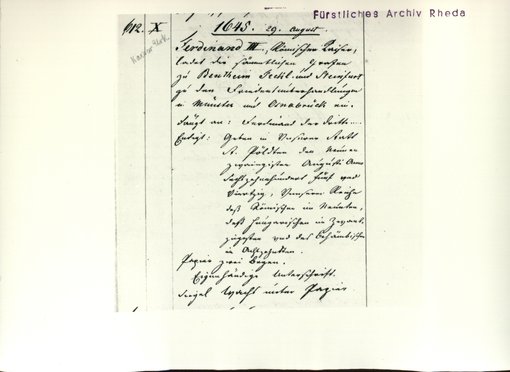 Fürstliches Archiv Rheda
612. X 1645. 29. August.
Ferdinand III., Römischer Kaiser,
ladet die sämmtlichen Grafen
zu Bentheim Teckl. und Steinfurt
zu den Friedensunterhandlungen
in Münster und Osnabrück ein.
Fängt an: Ferdinand der dritte....
Endigt: Geben in Unserer Statt
St. Pöldten den Neunen
zwainzigsten Augusti Anno
Sechzehnhundert fünf und
Vierzig, Unserer Reiche
deß Römischen im Neunten,
deß Hungarischen in Zwainzigsten
und des Behämbischen
in Achtzehndten.
Papier zwei Bogen.
Eigenhändige Unterschrift.
Siegel Wachs unter Papier.